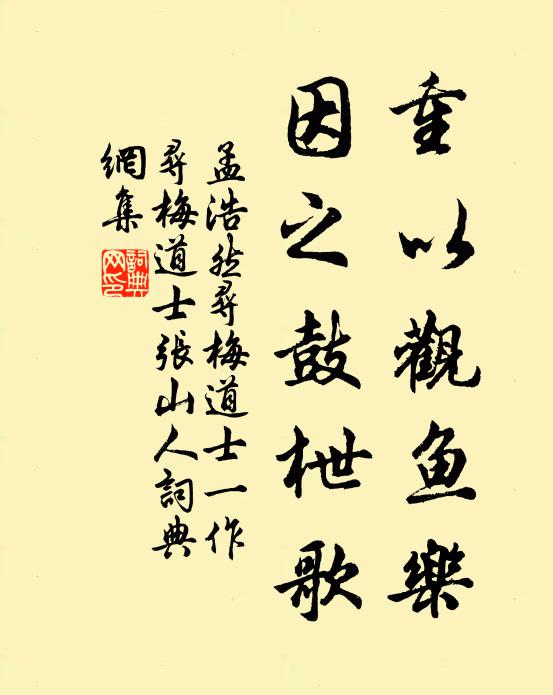 重以觀鱼樂
因之鼓枻歌
孟浩然尋梅道士一作
尋梅道士張山人詞典
網集
詞典
网印